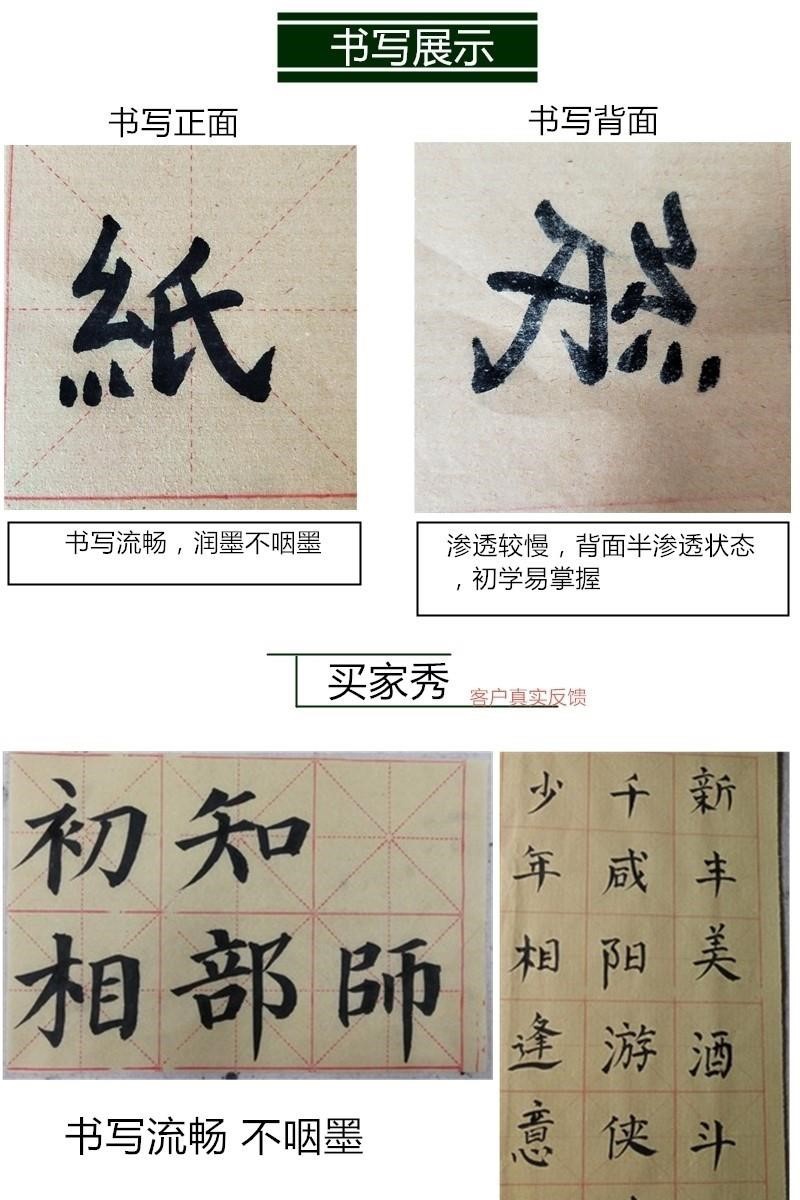 书写展示
书写正面
书写背面
紙
紙
书写流畅，润墨不咽墨
渗透较慢，背面半渗透状态
，初学易掌握
买家秀
客户真实反馈
初知
相部師
书写流畅 不咽墨
新丰美酒斗
千咸阳游侠
少年相逢意